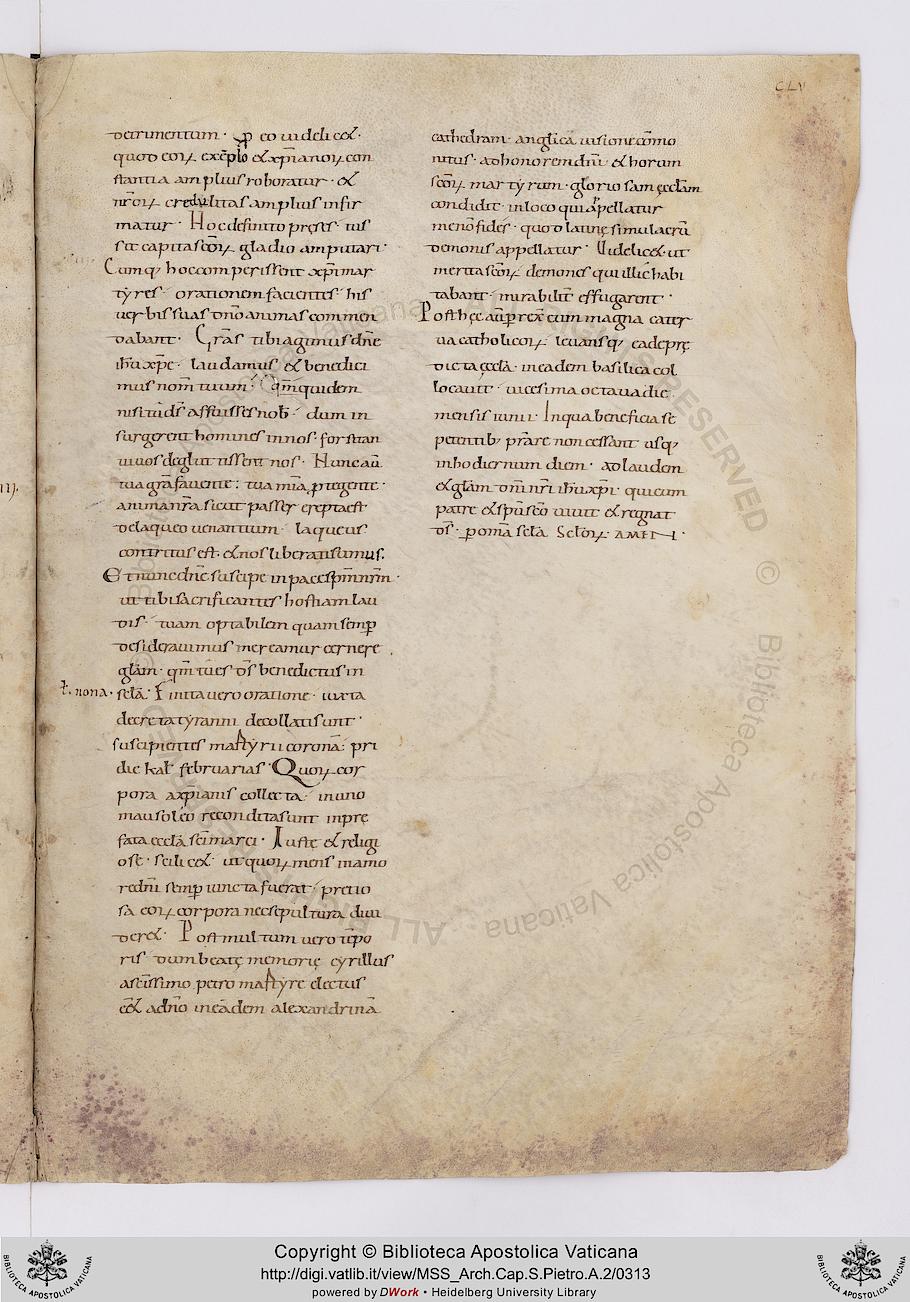 CLV
detrimentum · Pp eo uidelic&·
quod eoꝝ exēplo &xp̄ianoꝝ con
stantia amplius roboratur · &
nr̄oꝝ credulitas amplius infir
matur · Hoc definito pręses · ius
sit capita sc̄oꝝ gladio amputari·
Cumq; hoc comperissent xp̄i mar
tẏres · orationem facientes · his
uerbis suas dn̄o animas commen
dabant · Gr̄as tibi agimus dn̄e
ih̄u xp̄e · laudamus & benedici
mus nom̄ tuum · Qm̄ quidem
nisi tu d̄s affuisses nob · dum in
surgerent homines in nos · forsitan
uiuos deglutissent nos · Nunc au̅
tua gr̄a fauente : tua mīa ꝓtegente ·
anima nr̄a sicut passer erepta est
de laqueo uenantium · laqueus
contritus est · & nos liberati sumus.
Et nunc dn̄e suscipe in pace sp̄m nr̄m ·
ut tibi sacrificantes hostiam lau
dis · tuam optabilem quam semꝑ
desiderauimus mereamur cernere
gl̄am · qm̄ tu es d̄s benedictus in
ł. nona·
sc̄la · Finita uero oratione · iuxta
decreta tẏranni decollati sunt ·
suscipientes martẏrii coronā · pri
die kal februarias · Quoꝝ cor
pora a xp̄ianis collecta · in uno
mausoleo recondita sunt in pre
fata eccla sc̄i marci · Iuste & religi
ose · scilic& · ut quoꝝ mens in amo
re dn̄i semꝑ iuncta fuerat · pretio
sa eoꝝ corpora nec sepultura diui
der& · Post multum uero tēpo
ris dum beatę memorię cẏrillus
a sc̄issimo petro martẏre electus
ē& ad n̄o in eadem alexandrina
cathedram · anglica uisione com̄o
nitus · ad honorendum & horum
sc̄oꝝ martẏrum · gloriosam ęccłam
condidit · in loco qui appellatur
menofides · quod latinę simulacrū
demonis appellatur · Uidelic& · ut
merita sc̄oꝝ demones qui illic habi
tabant · mirabilit̄ effugarent ·
Post hęc au̅ ꝑrex̄ cum magna cater
ua catholicoꝝ · leuansq; eade prę
dicta ęccla · in eadem basilica col
locauit · uicesima octaua die
mensis iunii · In qua beneficia se
petentib; p̄stare non cessant usq;
in hodiernum diem · ad laudem
& gl̄am dn̄i nr̄i ih̄u xp̄i · qui cum
patre & sp̄u sc̄o uiuit & regnat
d̄s · ꝑ om̄a sc̄la Sc̄loꝝ · AMEN ·
Copyright © Biblioteca Apostolica Vaticana
http://digi.vatlib.it/view/MSS_Arch.Cap.S.Pietro.A.2/0313
powered by DWork • Heidelberg University Library